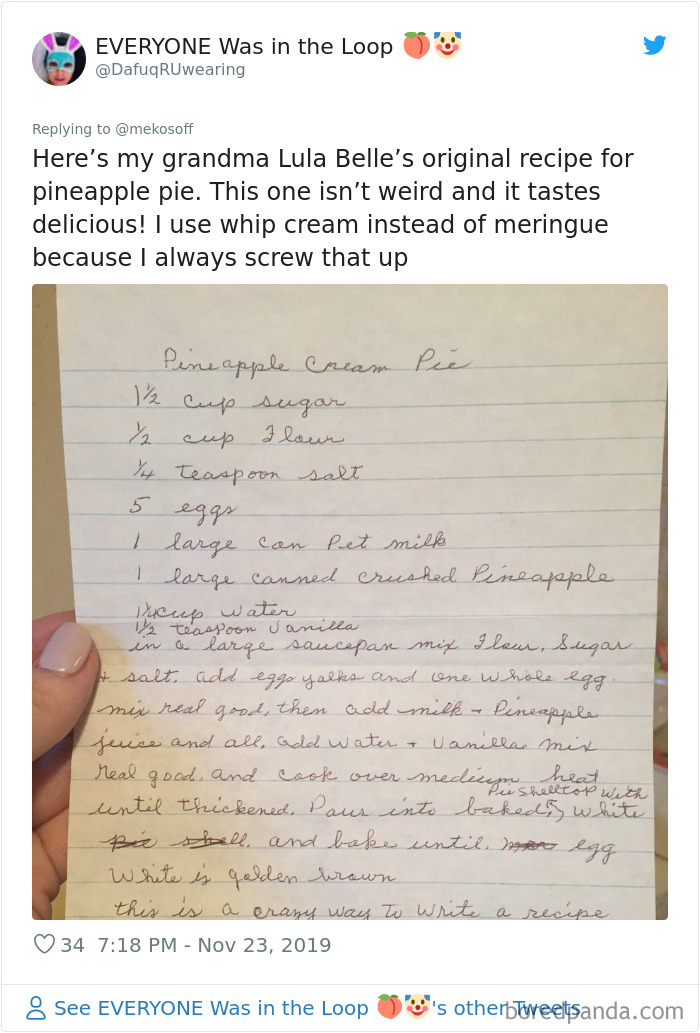 EVERYONE Was in the Loop 🍑🤡
@DafuqRUwearing
Replying to @mekosoff
Here’s my grandma Lula Belle’s original recipe for
pineapple pie. This one isn’t weird and it tastes
delicious! I use whip cream instead of meringue
because I always screw that up
Pineapple Cream Pie
1½ cup sugar
½ cup Flour
¼ teaspoon salt
5 eggs
1 large can Pet milk
1 large canned crushed Pineapple
1¼cup water
1½ teaspoon Vanilla
in a large saucepan mix Flour, Sugar
+ salt. add eggs yolks and one whole egg.
mix real good, then add milk + Pineapple
jeuice and all, add water + Vanilla mix
real good. and cook over medium heat
Pie Shell top with
until thickened. Pour into baked, white
pie shell. and bake until. egg
White is golden brown
this is a crazy way to write a recipe
34 7:18 PM - Nov 23, 2019
See EVERYONE Was in the Loop 🍑🤡's other Tweets
boredpanda.com